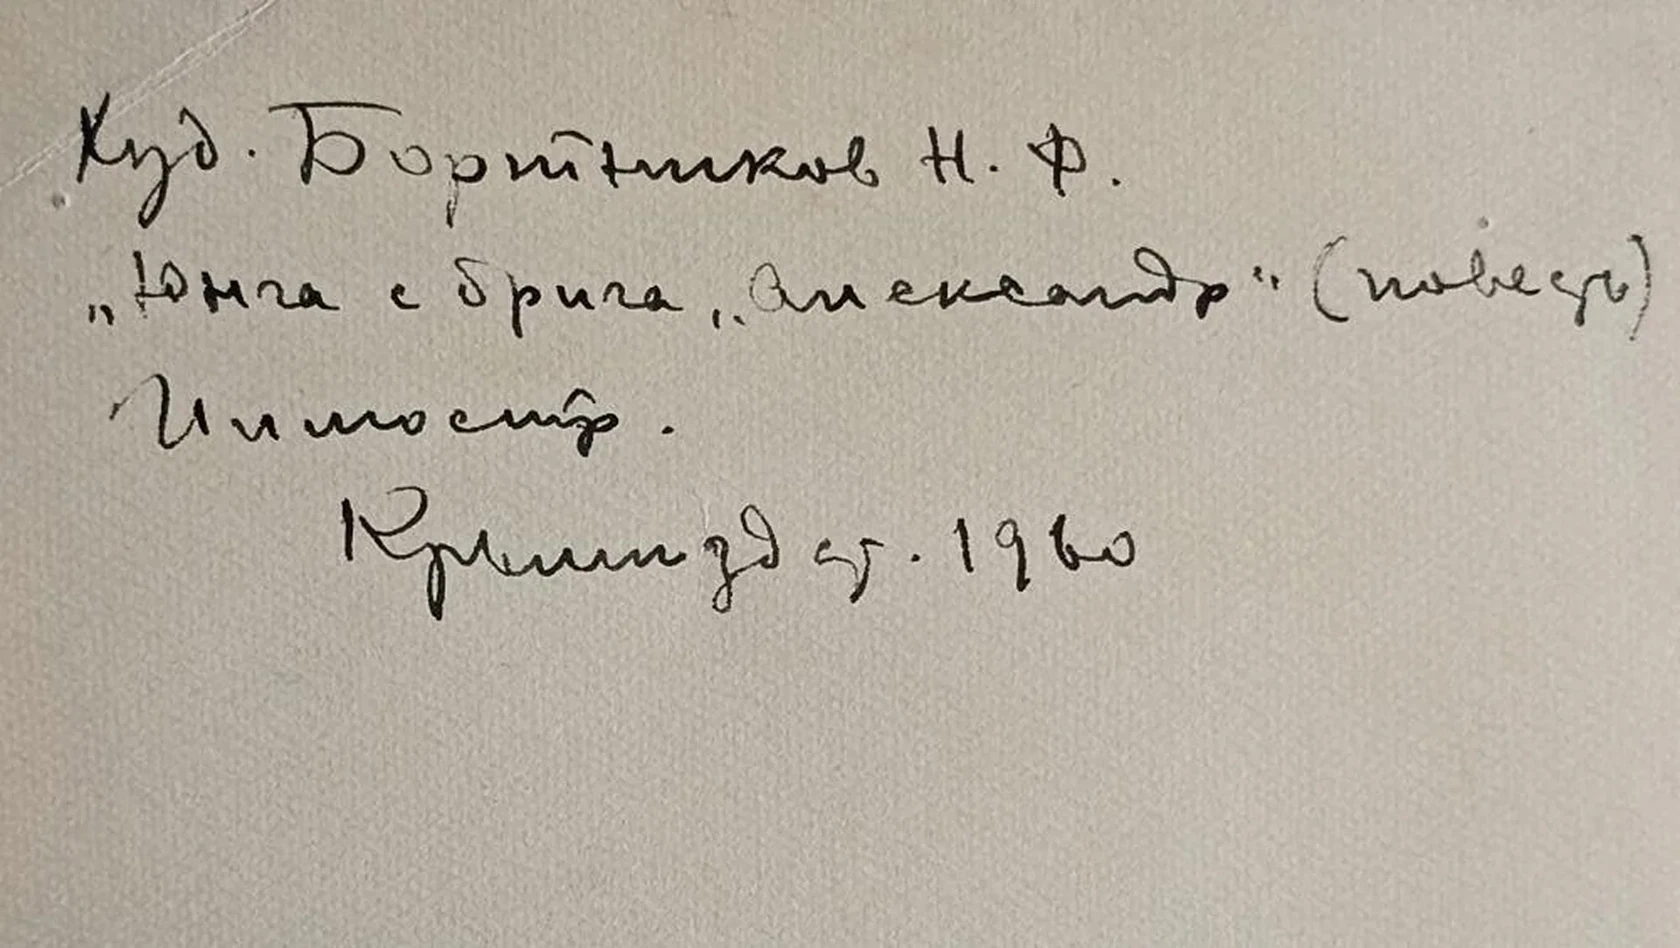 Худ. Бортников Н. Ф.
„Юнга с брига „Александр“ (повесть)
Иллюстр.
Крымиздат. 1960